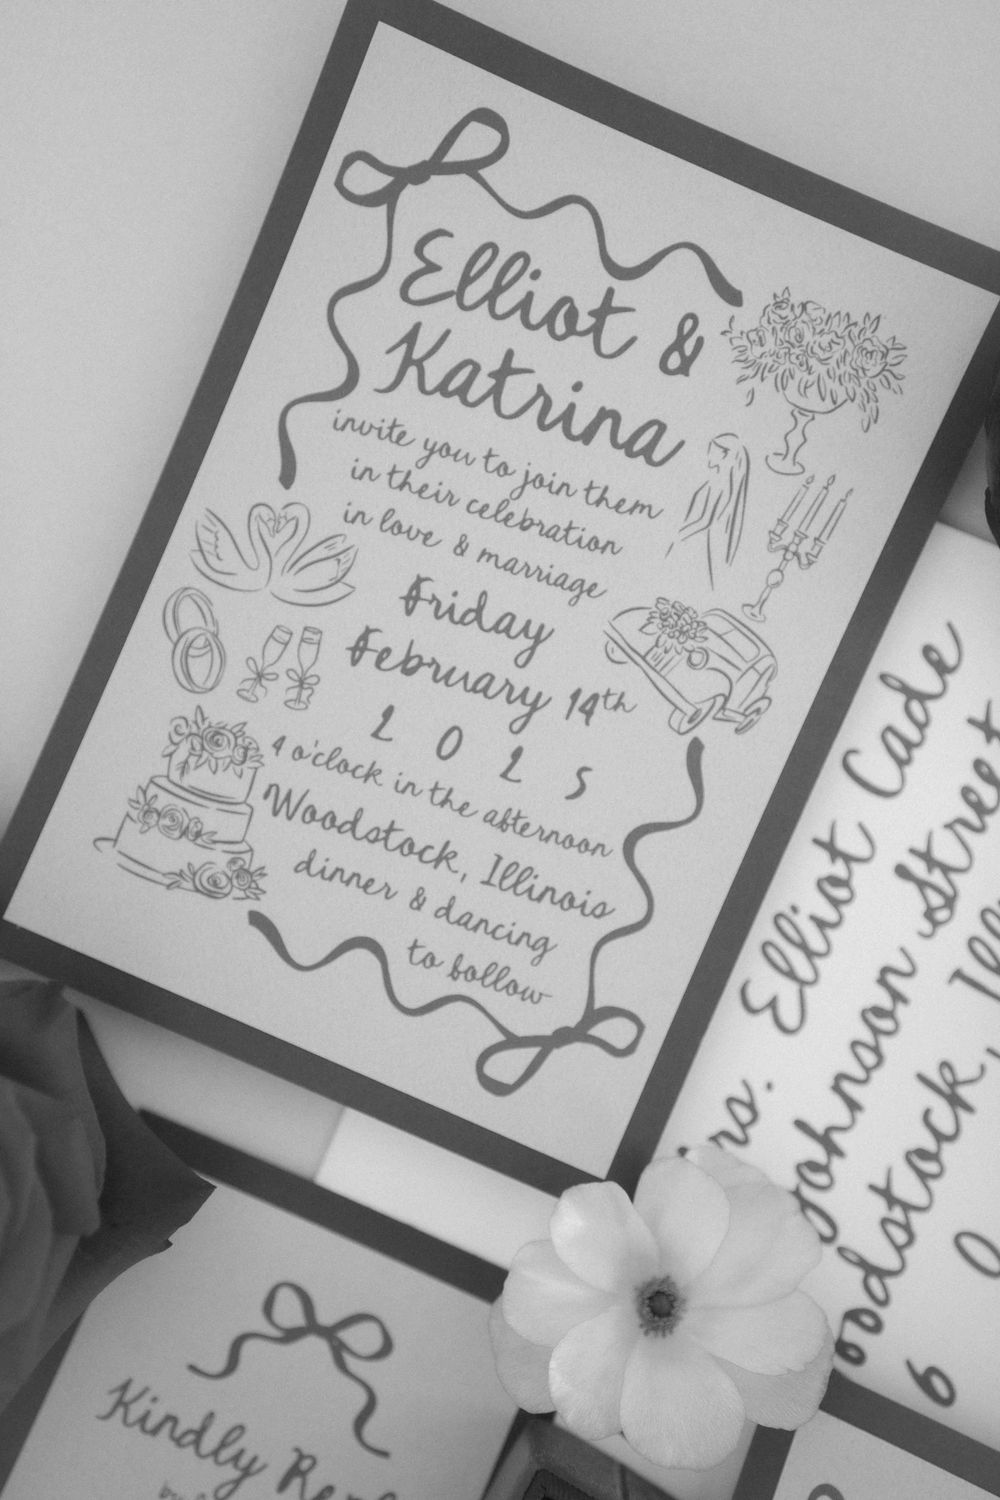 Elliot &
Katrina
invite you to join them
in their celebration
in love & marriage
Friday
February 14th
2 0 2 5
4 o'clock in the afternoon
Woodstock, Illinois
dinner & dancing
to follow
Elliot Cade
Johnson Street
Kindly